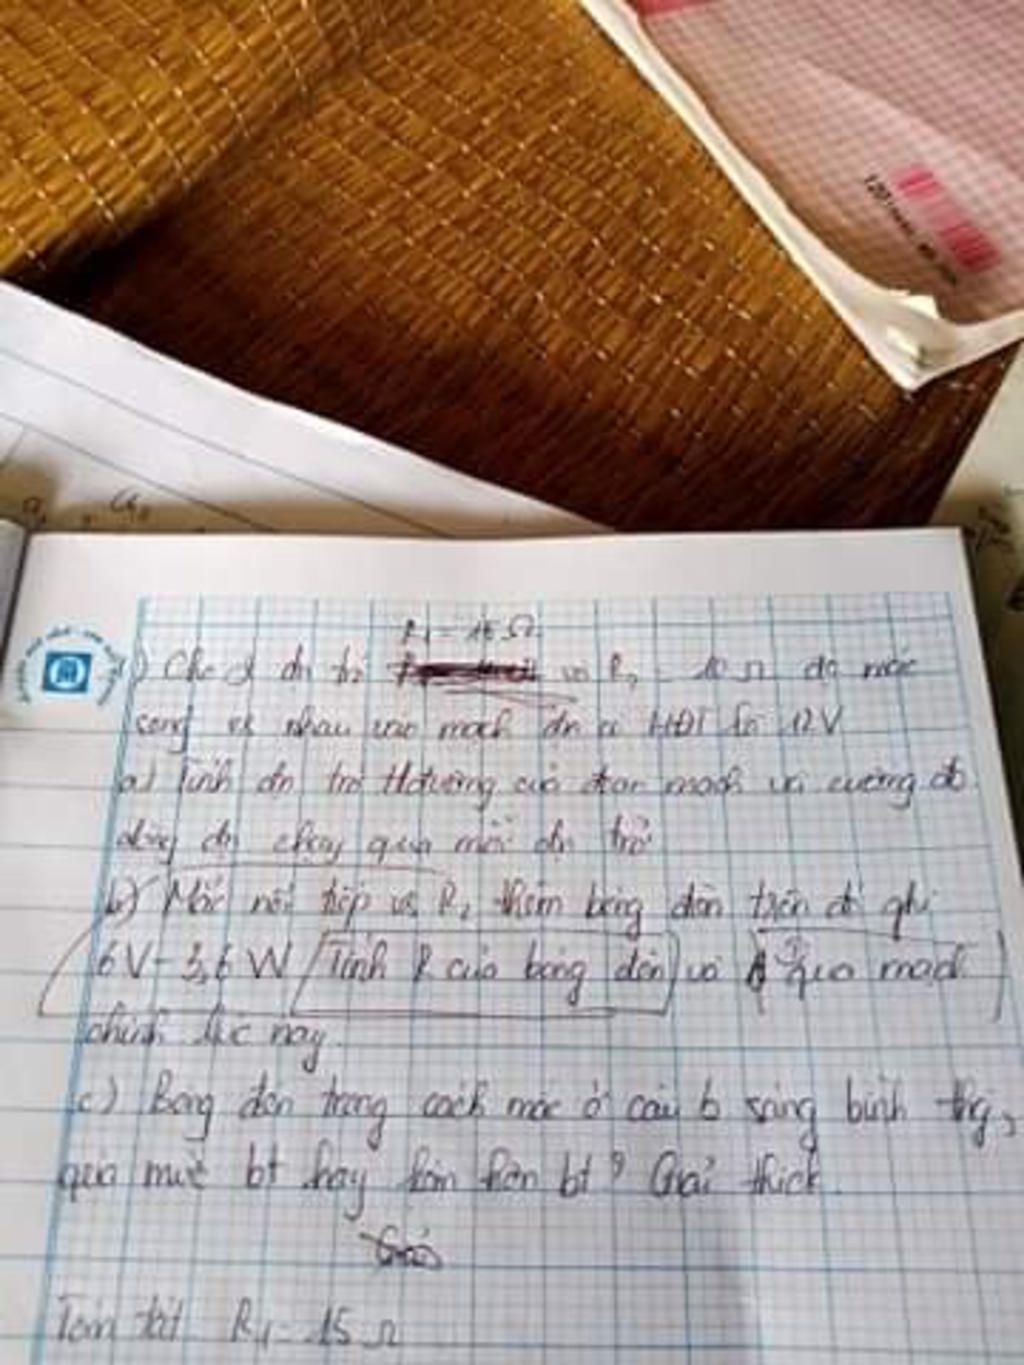 R₁ = 15 Ω
) Cho 2 đn trở và R₂ = 10 Ω đc mắc
song vs nhau vào mạch đn có HĐT là 12V
a) Tính đn trở tđương của đoạn mạch và cường độ
dòng đn chạy qua mỗi đn trở
b) Mắc nối tiếp vs R₂ thêm bóng đèn trên đó ghi
6V - 3,6 W Tính R của bóng đèn và qua mạch
chính lúc này.
c) Bóng đèn trong cách mắc ở câu b sáng bình thg,
quá mức bt hay kém hơn bt? Giải thích.
Tóm tắt R₁ = 15 Ω